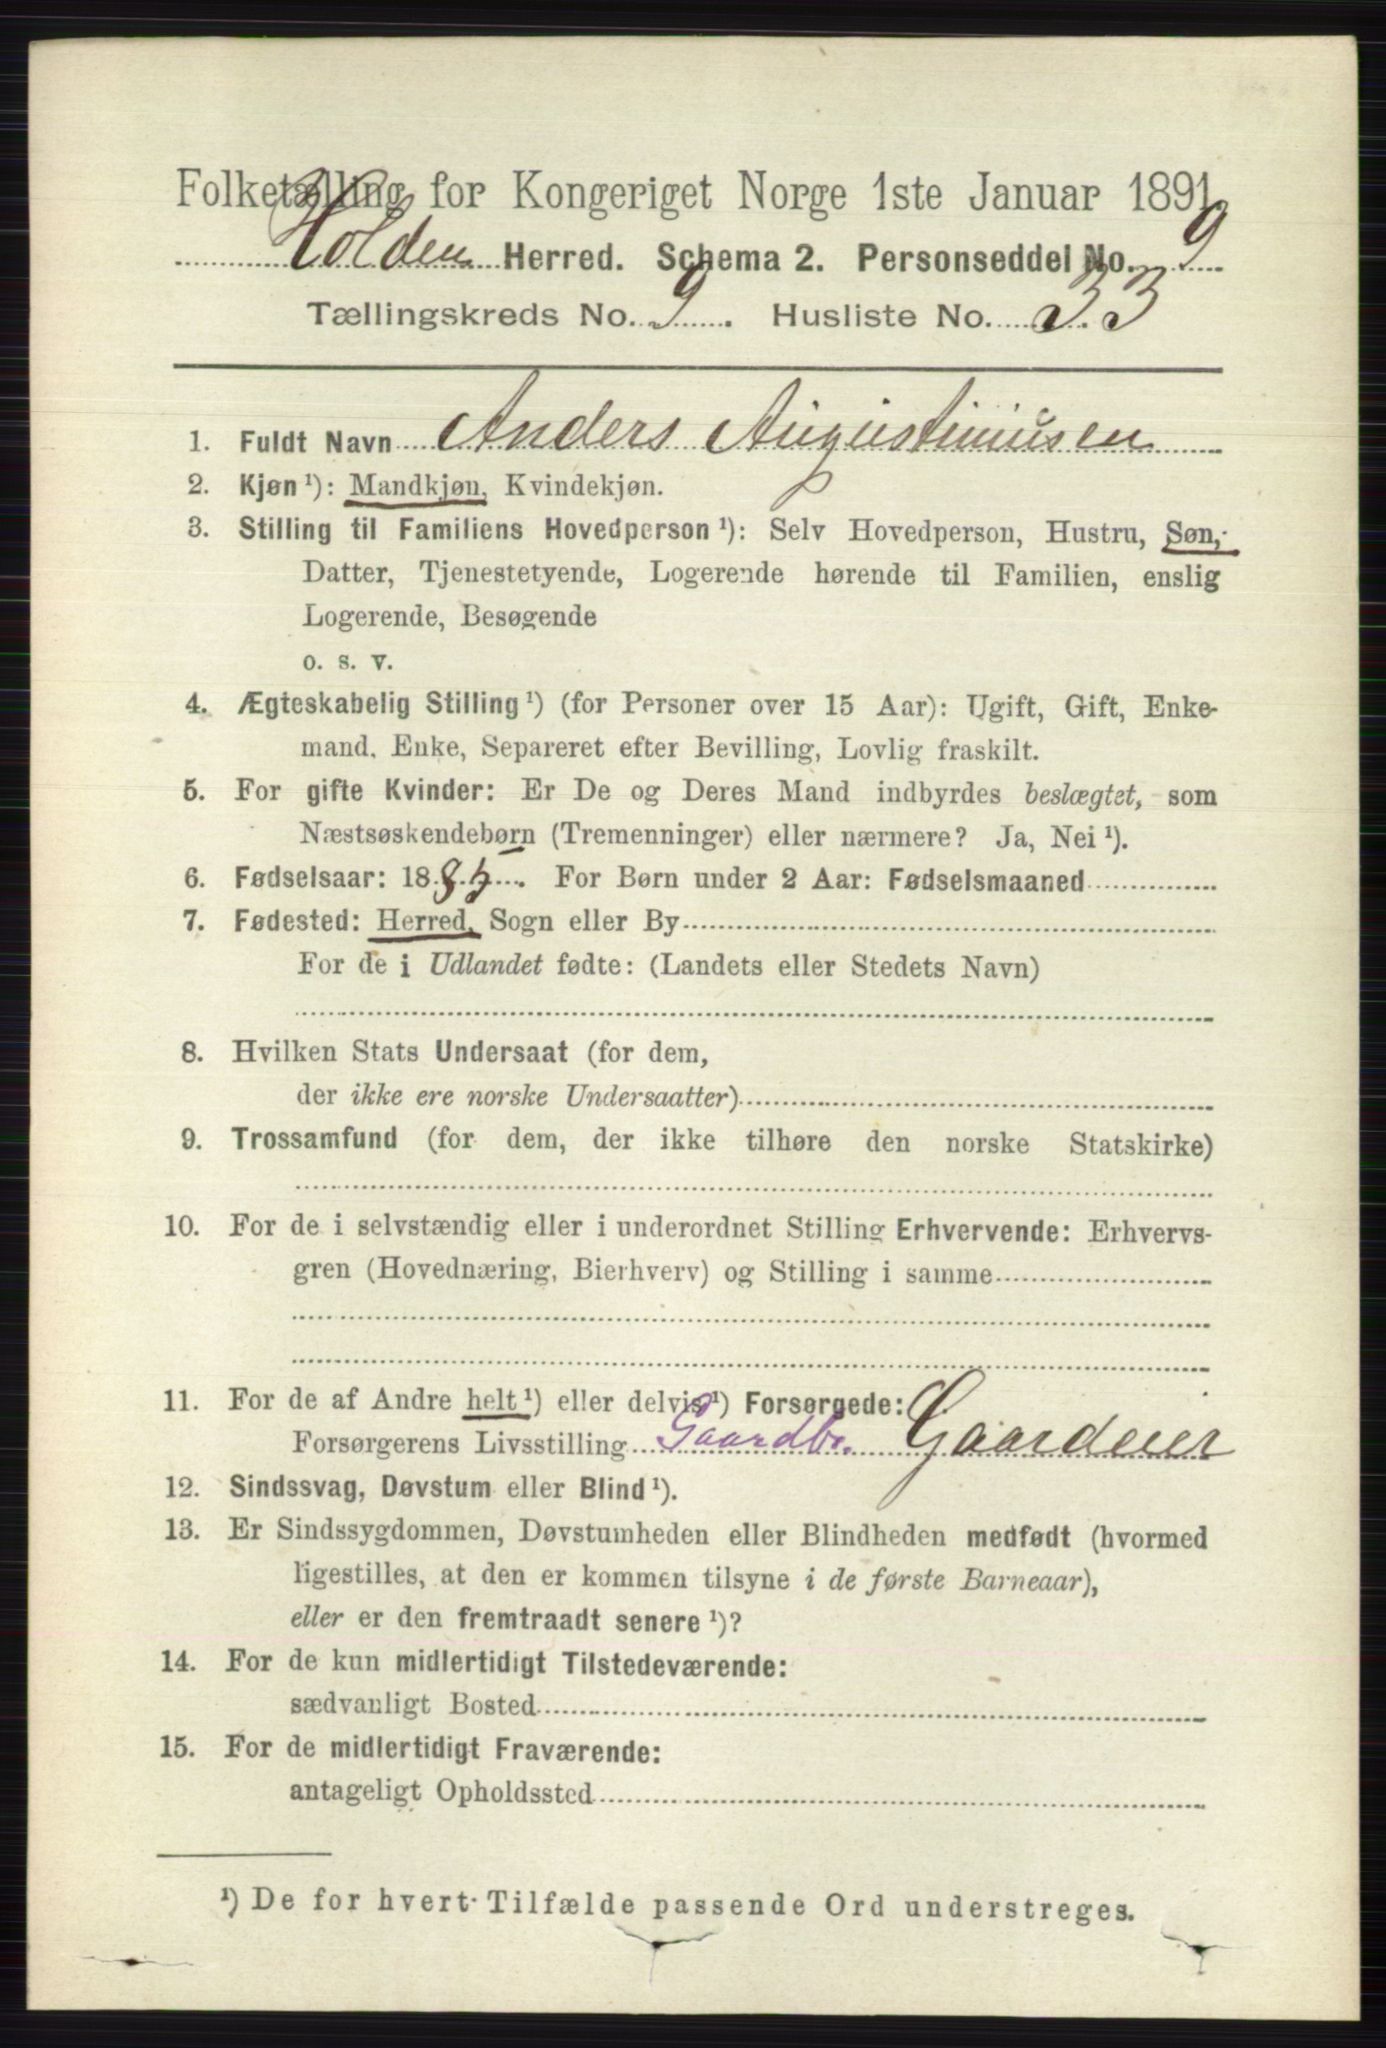 Folketælling for Kongeriget Norge 1ste Januar 1891.
Holden Herred. Schema 2. Personseddel No. 9
Tællingskreds No. 9. Husliste No. 33
1. Fuldt Navn Anders Augustinusen
2. Kjøn ¹): Mandkjøn, Kvindekjøn.
3. Stilling til Familiens Hovedperson ¹): Selv Hovedperson, Hustru, Søn,
Datter, Tjenestetyende, Logerende hørende til Familien, enslig
Logerende, Besøgende
o. s. v.
4. Ægteskabelig Stilling ¹) (for Personer over 15 Aar): Ugift, Gift, Enke-
mand, Enke, Separeret efter Bevilling, Lovlig fraskilt.
5. For gifte Kvinder: Er De og Deres Mand indbyrdes beslægtet, som
Næstsøskendebørn (Tremenninger) eller nærmere? Ja, Nei ¹).
6. Fødselsaar: 1885. For Børn under 2 Aar: Fødselsmaaned
7. Fødested: Herred, Sogn eller By
For de i Udlandet fødte: (Landets eller Stedets Navn)
8. Hvilken Stats Undersaat (for dem,
der ikke ere norske Undersaatter)
9. Trossamfund (for dem, der ikke tilhøre den norske Statskirke)
10. For de i selvstændig eller i underordnet Stilling Erhvervende: Erhvervs-
gren (Hovednæring, Bierhverv) og Stilling i samme
11. For de af Andre helt ¹) eller delvis ¹) Forsørgede:
Forsørgerens Livsstilling Gaardbr. Gaardeier
12. Sindssvag, Døvstum eller Blind ¹).
13. Er Sindssygdommen, Døvstumheden eller Blindheden medfødt (hvormed
ligestilles, at den er kommen tilsyne i de første Barneaar),
eller er den fremtraadt senere ¹)?
14. For de kun midlertidigt Tilstedeværende:
sædvanligt Bosted
15. For de midlertidigt Fraværende:
antageligt Opholdssted
¹) De for hvert Tilfælde passende Ord understreges.